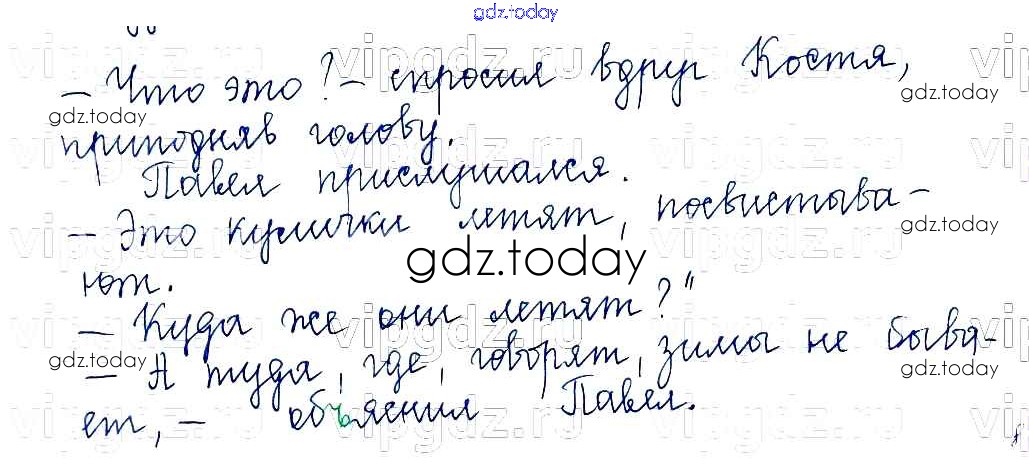 gdz.today
— Что это? — спросил вдруг Костя,
приподняв голову.
Павел прислушался.
— Это кулички летят, посвистыва-
ют.
gdz.today
— Куда же они летят?"
— А туда, где, говорят, зимы не быва-
ет, — объяснил Павел.
gdz.today
gdz.today
gdz.today
gdz.today
vipgdz.ru